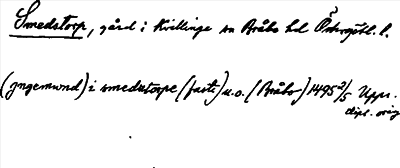 Smedstorp, gård i Kvillinge sn Bråbo hd Östergötl. l.
(Jngemund) i smedstorpe (fasti) u.o. (Bråbo) 1495 2/5 Upps.
dipl. orig